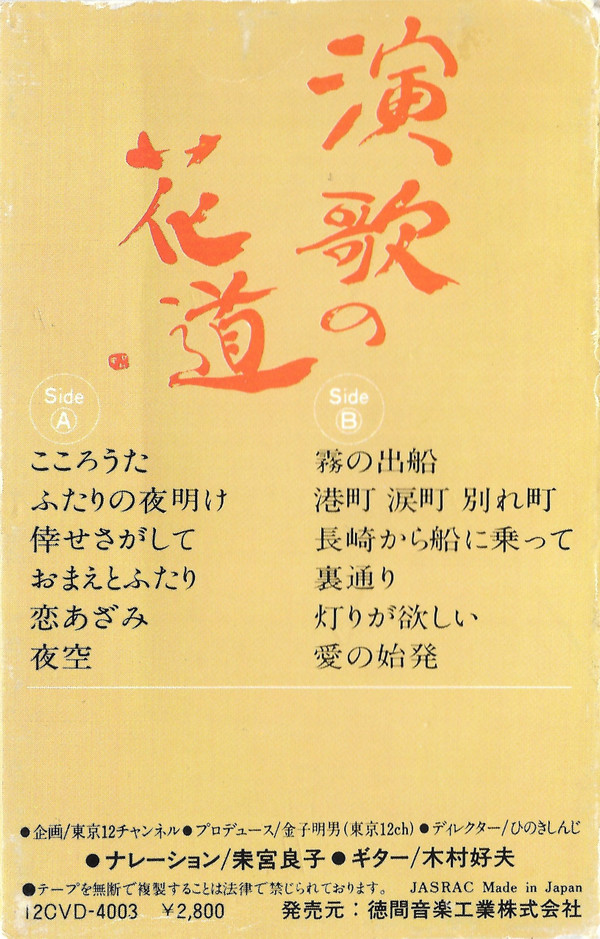 演歌の
花道
Side
A
こころうた
ふたりの夜明け
倖せさがして
おまえとふたり
恋あざみ
夜空
Side
B
霧の出船
港町 涙町 別れ町
長崎から船に乗って
裏通り
灯りが欲しい
愛の始発
●企画/東京12チャンネル●プロデュース/金子明男(東京12ch)●ディレクター/ひのきしんじ
●ナレーション/来宮良子●ギター/木村好夫
●テープを無断で複製することは法律で禁じられております。 JASRAC Made in Japan
12CVD-4003 ¥2,800 発売元：徳間音楽工業株式会社